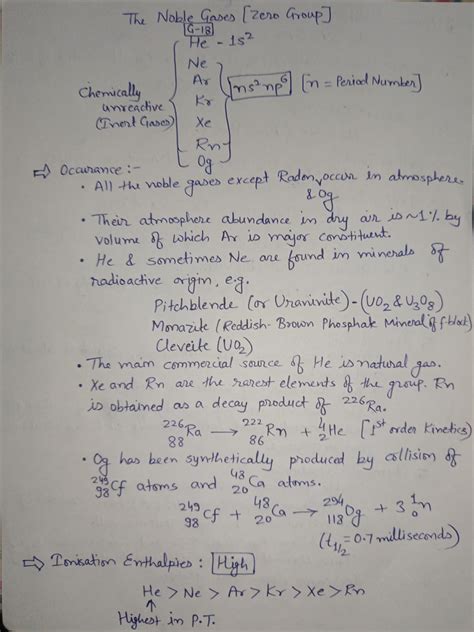 The Noble Gases [Zero Group]
G-18
He - 1s²
Ne
Ar
Kr
Xe
Rn
Og
Chemically
unreactive
(Inert Gases)
ns²np⁶ [n = Period Number]
⇒ Occurance :-
• All the noble gases except Radon & Og occur in atmosphere.
• Their atmosphere abundance in dry air is ~1% by
volume of which Ar is major constituent.
• He & sometimes Ne are found in minerals of
radioactive origin, e.g.
Pitchblende (or Uraninite) - (UO₂ & U₃O₈)
Monazite (Reddish-Brown Phosphate Mineral of f-block)
Cleveite (UO₂)
• The main commercial source of He is natural gas.
• Xe and Rn are the rarest elements of the group. Rn
is obtained as a decay product of ²²⁶Ra.
²²⁶₈₈Ra → ²²²₈₆Rn + ⁴₂He [1st order kinetics]
• Og has been synthetically produced by collision of
²⁴⁹₉₈Cf atoms and ⁴⁸₂₀Ca atoms.
²⁴⁹₉₈Cf + ⁴⁸₂₀Ca → ²⁹⁴₁₁₈Og + 3 ¹₀n
(t₁/₂ = 0.7 milliseconds)
⇒ Ionisation Enthalpies : High
He > Ne > Ar > Kr > Xe > Rn
↑
Highest in P.T.